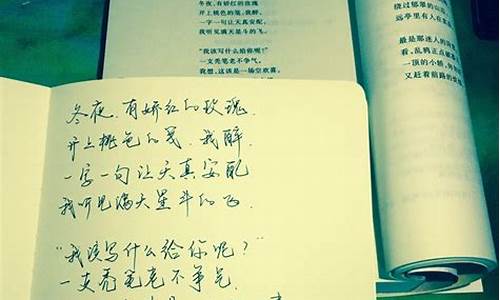 冬夜,有娇红的玫瑰
开上桃色的笺,我醉,
一字一句让天真安配,
我听见满天星斗的飞。
“我该写什么给你呢?”
一支秃笔老不争气,
我想,这该是一场空欢喜,
绕过郁翠的山
远亭里有人在
最是那迷人的
看,乱鸦正点破
一顶的小轿,
又赶着前路的
冬夜,有娇红的玫瑰.
开上桃色的笺,我醉.
一字一句让天真安配
我听见满天星斗的飞.
“我该写什么给你呢?”
一支秃笔老不争气.